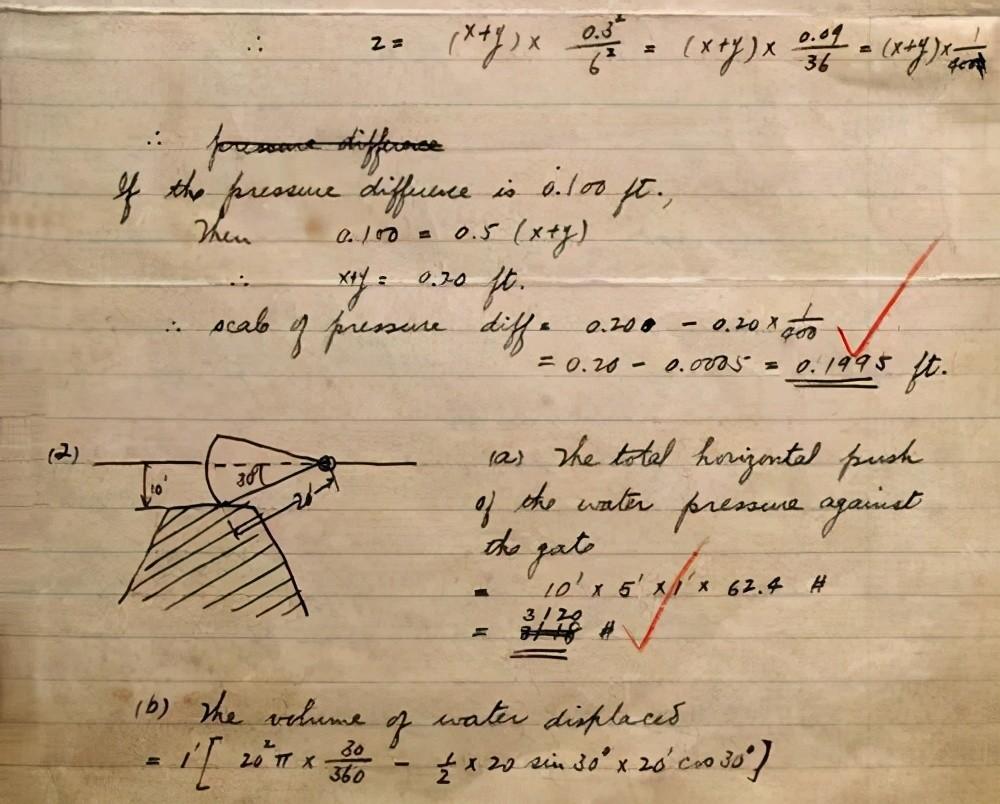 ∴ z = (x+y) × 0.3²/6² = (x+y) × 0.09/36 = (x+y) × 1/400
∴ pressure difference
If the pressure difference is 0.100 ft.,
Then 0.100 = 0.5 (x+y)
∴ x+y = 0.20 ft.
∴ scale of pressure diff = 0.200 - 0.20 × 1/400
= 0.20 - 0.0005 = 0.1995 ft.
(2)
10'
30°
20'
(a) The total horizontal push
of the water pressure against
the gate
= 10' × 5' × 1' × 62.4 #
3120
= #
(b) The volume of water displaced
= 1' [ 20² π × 30/360 - 1/2 × 20 sin 30° × 20' cos 30° ]